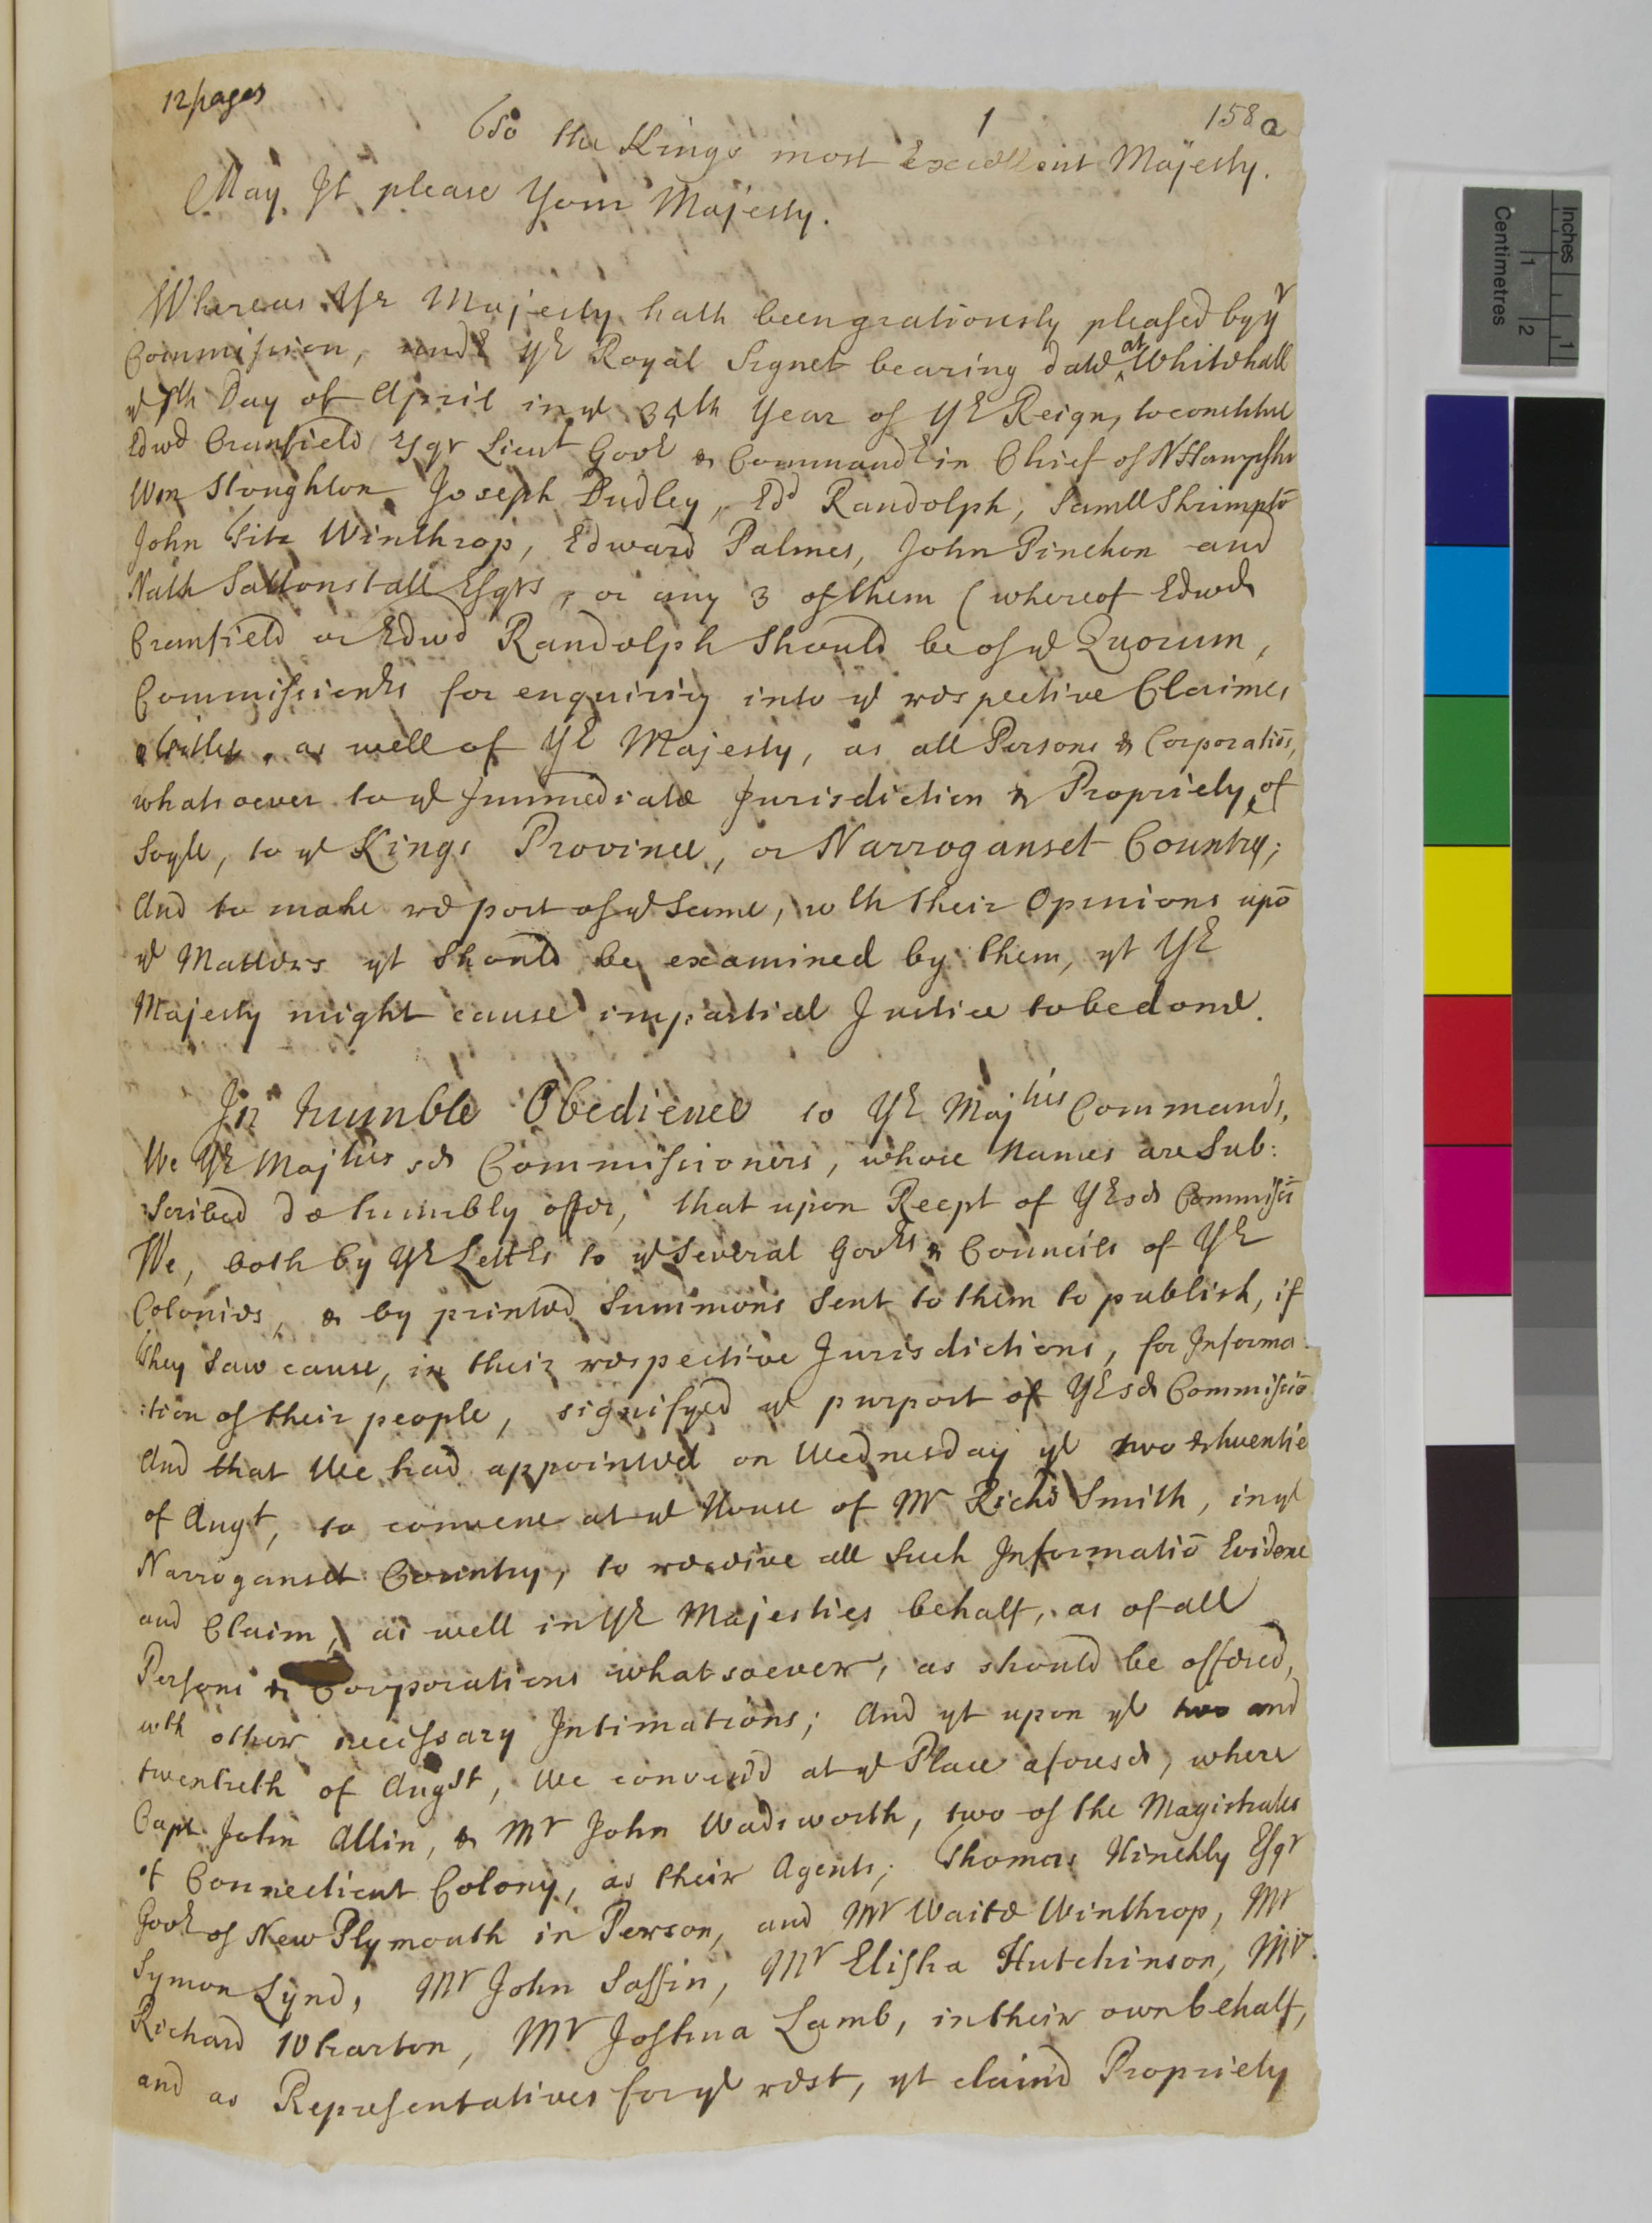 12 pages
1
158a
To the Kings most Excellent Majesty.
May It please Your Majesty.
Whereas Yr Majesty hath been gratiously pleased by yr
Commission, undr Yr Royal Signet bearing date at Whitehall
ye 7th Day of April in ye 35th Year of Yr Reign, to constitut
Edwd Cranfield Esqr Lieut Govr & Commandr in Chief of N Hampshr
Wm Stoughton Joseph Dudley, Edd Randolph, Samll Shrimptō
John Fitz Winthrop, Edward Palmes, John Pinchon and
Nath Saltonstall Esqrs, or any 3 of them (whereof Edwd
Cranfield or Edwd Randolph should be of ye Quorum,
Commissionrs for enquiring into ye respective Claimes
& Titles, as well of Yr Majesty, as all Persons & Corporatiōs,
whatsoever to ye Immediate Jurisdiction & Propriety of
Soyle, to ye Kings Province, or Narroganset Country;
And to make report of ye same, wth their Opinions upō
ye Matters yt should be examined by them, yt Yr
Majesty might cause impartial Justice to be done.
In humble Obedience to Yr Majties Commands,
We Yr Majties sd Commissioners, whose Names are Sub:
:scribed do humbly offer, that upon Recpt of Yr sd Commissiō
We, both by Yr Lettrs to ye several Govrs & Councils of Yr
Colonies, & by printed Summons sent to them to publish, if
they saw cause, in their respective Jurisdictions, for Informa:
:tion of their people, signifyed ye purport of Yr sd Commissiō
And that We had appointed on Wednesday ye two & twentie
of Augt, to convene at ye House of Mr Richd Smith, in ye
Narroganset Country, to receive all such Informatiō Evidence
and Claim, as well in Yr Majesties behalf, as of all
Persons & Corporations whatsoever, as should be offered,
wth other necessary Intimations; And yt upon ye two and
twentieth of Augst, We convend at ye Place aforesd, where
Capt John Allin, & Mr John Wadsworth, two of the Magistrates
of Connecticut Colony, as their Agents; Thomas Hinckly Esqr
Govr of New Plymouth in Person, and Mr Waite Winthrop, Mr
Symon Lynd, Mr John Saffin, Mr Elisha Hutchinson, Mr
Richard Wharton, Mr Joshua Lamb, in their own behalf,
and as Representatives for ye rest, yt claim'd Propriety
Inches
Centimetres
1
2
1